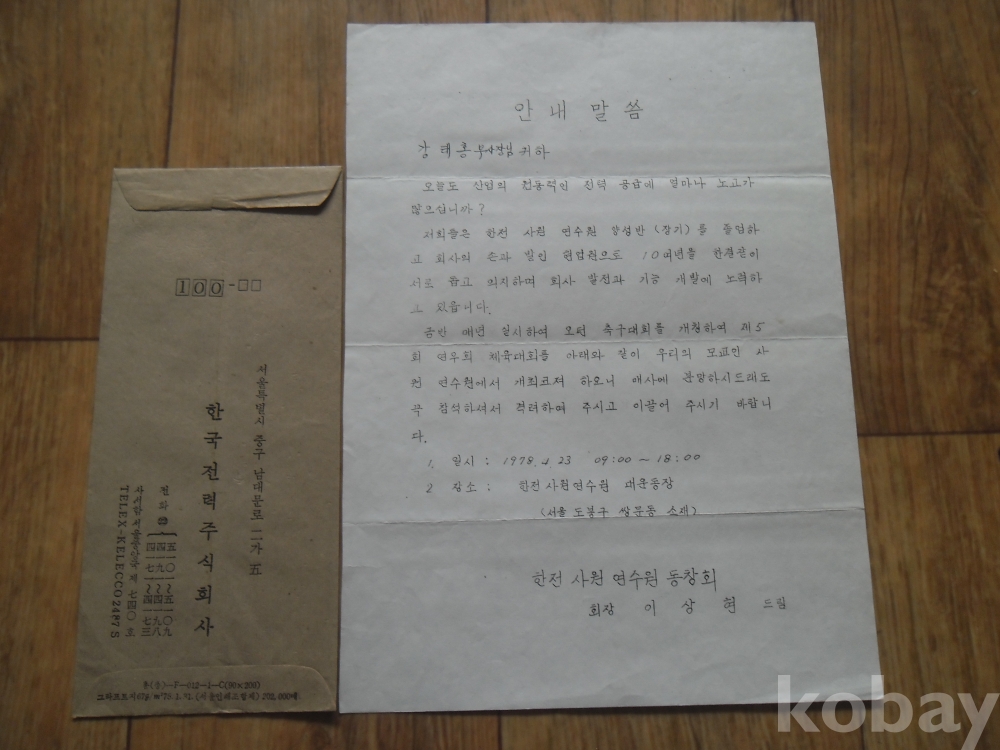 안내 말씀
강태홍 부사장님 귀하
오늘도 산업의 원동력인 전력 공급에 얼마나 노고가
많으십니까?
저희들은 한전 사원 연수원 양성반 (장기)를 졸업하
고 회사의 손과 발인 현업원으로 10여년을 한결같이
서로 돕고 의지하며 회사 발전과 기능 개발에 노력하
고 있읍니다.
금반 매년 실시하여 오던 축구대회를 개칭하여 제5
회 연우회 체육대회를 아래와 같이 우리의 모교인 사
원 연수원에서 개최코져 하오니 공사에 분망하시드래도
꼭 참석하셔서 격려하여 주시고 이끌어 주시기 바랍니
다.
1. 일시 : 1978. 4. 23 09:00 ~ 18:00
2 장소 : 한전 사원연수원 대운동장
(서울 도봉구 쌍문동 소재)
한전 사원 연수원 동창회
회장 이상현 드림
100-□□
서울특별시 중구 남대문로 二가 五
한국전력주식회사
전화
五一四一〇~五一四一九
TELEX-KELECCO 2487 S
kobay